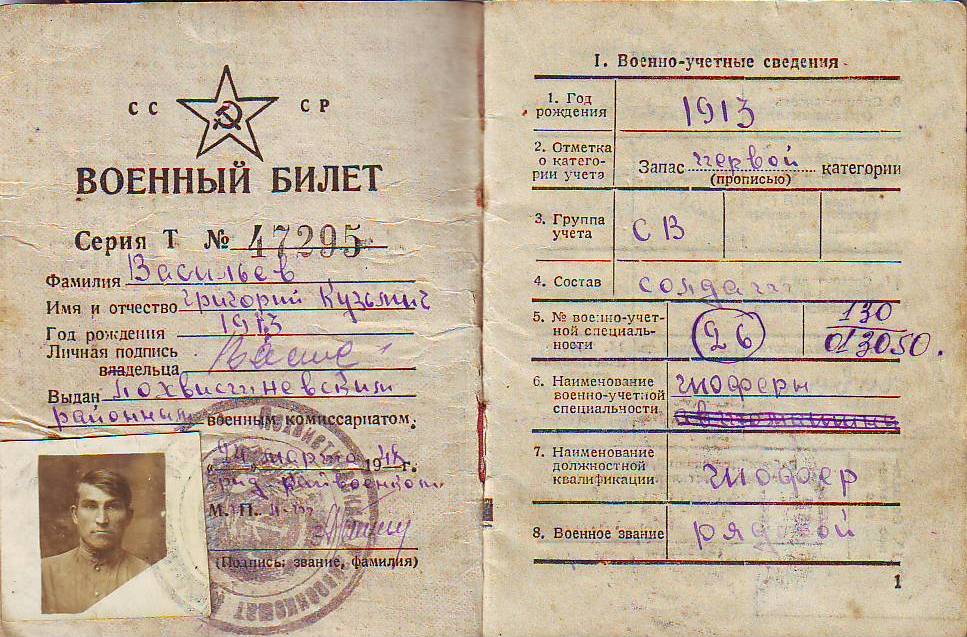 СС СР
ВОЕННЫЙ БИЛЕТ
Серия Т № 47295
Фамилия Васильев
Имя и отчество Григорий Кузьмич
Год рождения 1913
Личная подпись
владельца
Выдан Похвистневским
районным военным комиссариатом.
марта 19 г.
М. П.
(Подпись: звание, фамилия)
I. Военно-учетные сведения
1. Год
рождения 1913
2. Отметка
о катего-
рии учета
Запас первой категории
(прописью)
3. Группа
учета СВ
4. Состав солдат
5. № военно-учет-
ной специаль-
ности
26
130
013050.
6. Наименование
военно-учетной
специальности
шоферы
7. Наименование
должностной
квалификации
шофер
8. Военное звание рядовой
1